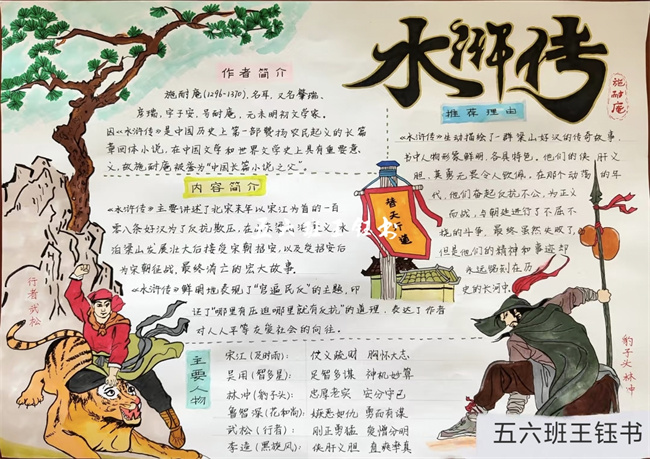 水浒传
施耐庵
作者简介
施耐庵(1296-1370),名耳,又名肇瑞,
彦端,字子安,号耐庵,元末明初文学家。
因《水浒传》是中国历史上第一部赞扬农民起义的长篇
章回体小说,在中国文学和世界文学史上具有重要意
义,故施耐庵被誉为“中国长篇小说之父”。
内容简介
《水浒传》主要讲述了北宋末年以宋江为首的一百
零八条好汉为了反抗欺压,在
泊梁山发展壮大后接受宋朝招安,以及受招安后
为宋朝征战,最终消亡的宏大故事。
《水浒传》鲜明地表现了“官逼民反”的主题,印
证了“哪里有压迫哪里就有反抗”的道理,表达了作者
对人人平等友爱社会的向往。
推荐理由
《水浒传》生动描绘了一群梁山好汉的传奇故事,
书中人物形象鲜明,各具特色,他们的侠肝义
胆、英勇无畏令人钦佩,在那个动荡的年
代,他们奋起反抗不公,为正义
而战,与朝廷进行了不屈不
挠的斗争,最终虽然失败了,
但是他们的精神和事迹却
永远铭刻在历
史的长河中。
替天行道
行者武松
豹子头林冲
主要人物
宋江(及时雨): 仗义疏财 胸怀大志
吴用(智多星): 足智多谋 神机妙算
林冲(豹子头): 忠厚老实 安分守己
鲁智深(花和尚): 嫉恶如仇 勇而有谋
武松(行者): 刚正勇猛 爱憎分明
李逵(黑旋风): 侠肝义胆 直爽率真
五六班王钰书